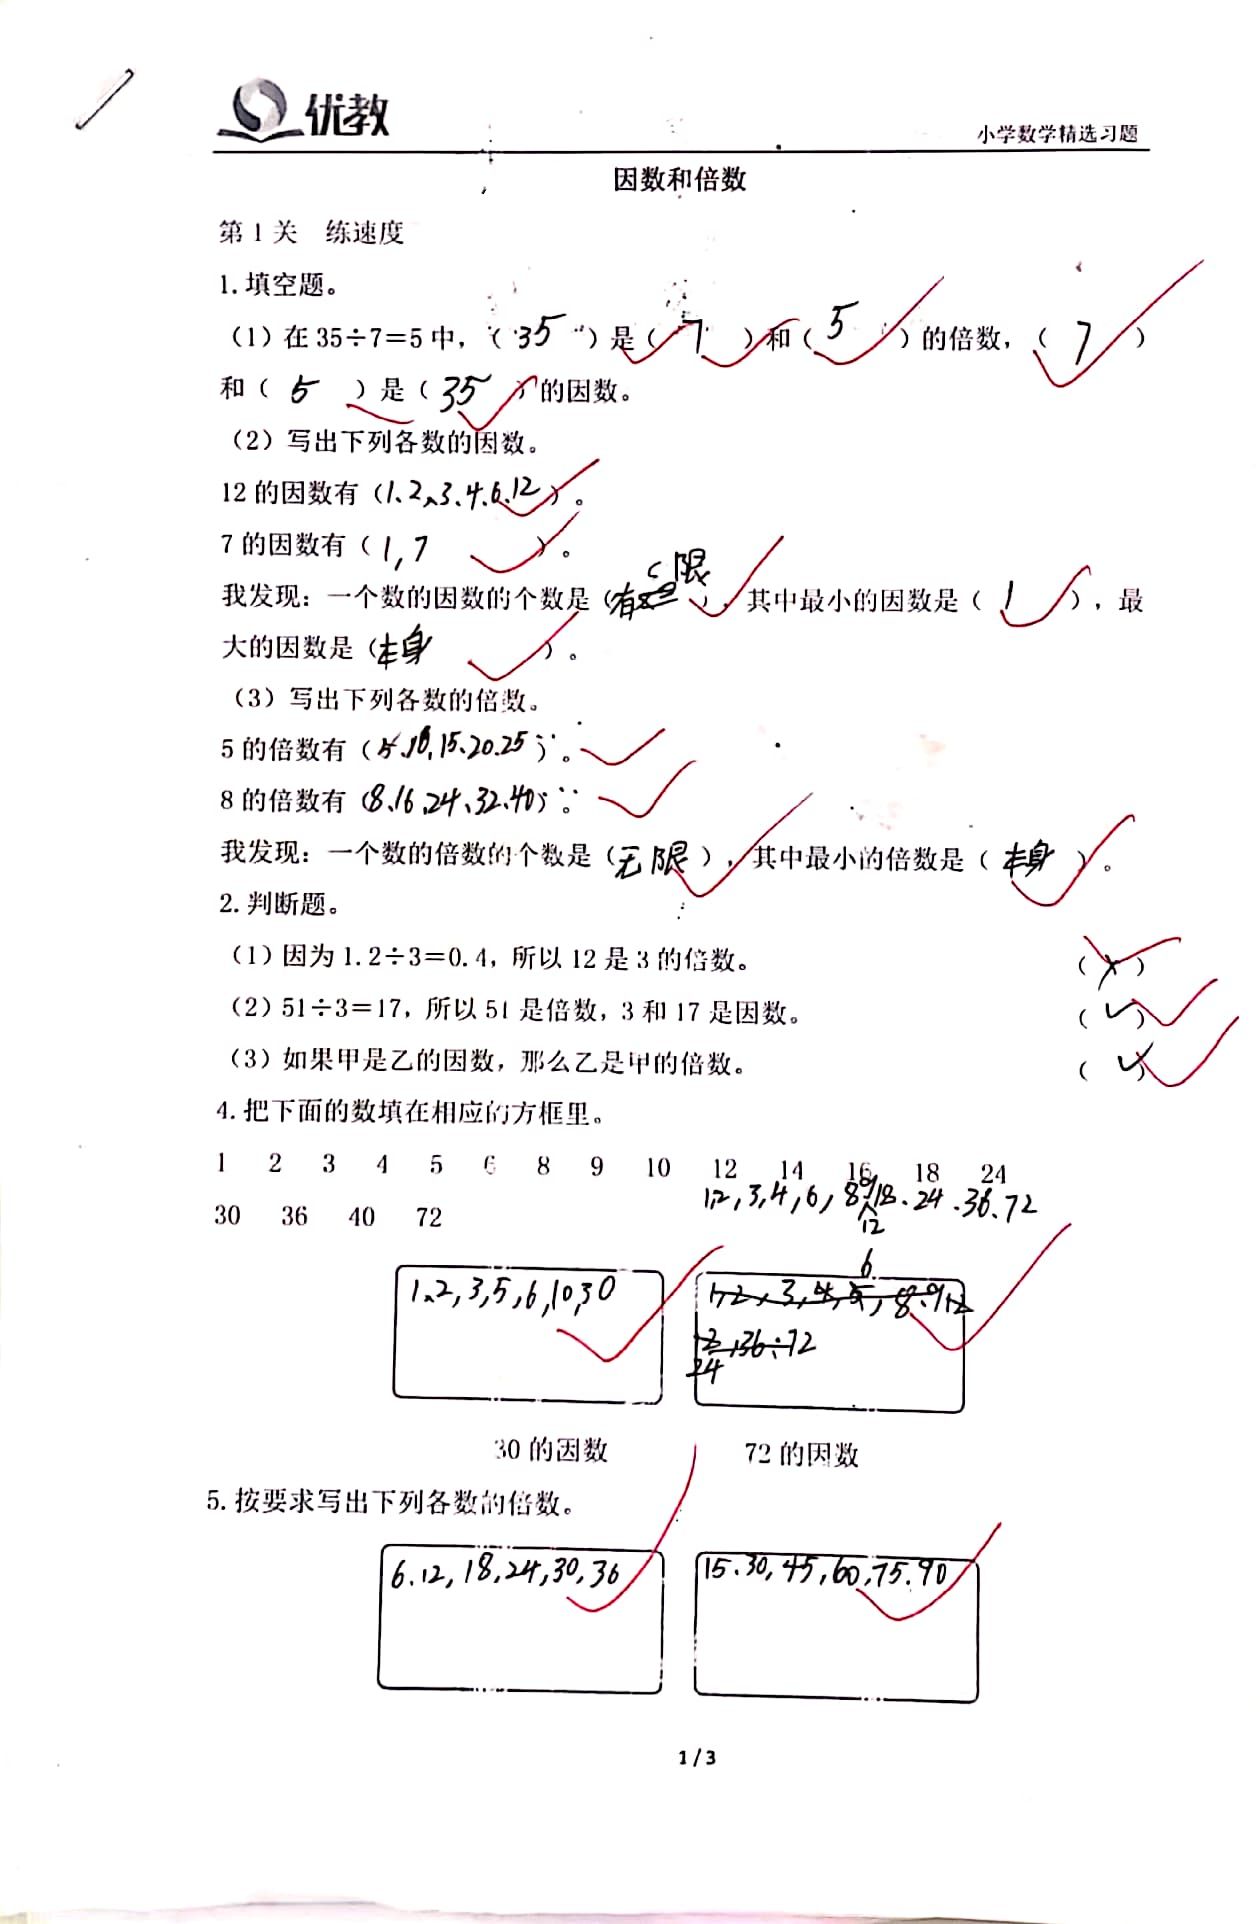 优教
小学数学精选习题
因数和倍数
第1关 练速度
1.填空题。
(1)在35÷7=5中,(35)是(7)和(5)的倍数,(7)
和(5)是(35)的因数。
(2)写出下列各数的因数。
12的因数有(1、2、3、4、6、12)。
7的因数有(1,7)。
我发现:一个数的因数的个数是(有限),其中最小的因数是(1),最
大的因数是(本身)。
(3)写出下列各数的倍数。
5的倍数有(5、10、15、20、25)。
8的倍数有(8、16、24、32、40)。
我发现:一个数的倍数的个数是(无限),其中最小的倍数是(本身)。
2.判断题。
(1)因为1.2÷3=0.4,所以12是3的倍数。 (×)
(2)51÷3=17,所以51是倍数,3和17是因数。 (✓)
(3)如果甲是乙的因数,那么乙是甲的倍数。 (✓)
4.把下面的数填在相应的方框里。
1 2 3 4 5 6 8 9 10 12 14 16 18 24
1,2,3,4,6,8,9,12,18.24.36.72
30 36 40 72
1、2,3,5,6,10,30
30的因数 72的因数
5.按要求写出下列各数的倍数。
6.12,18,24,30,36
15.30,45,60,75.90
1/3